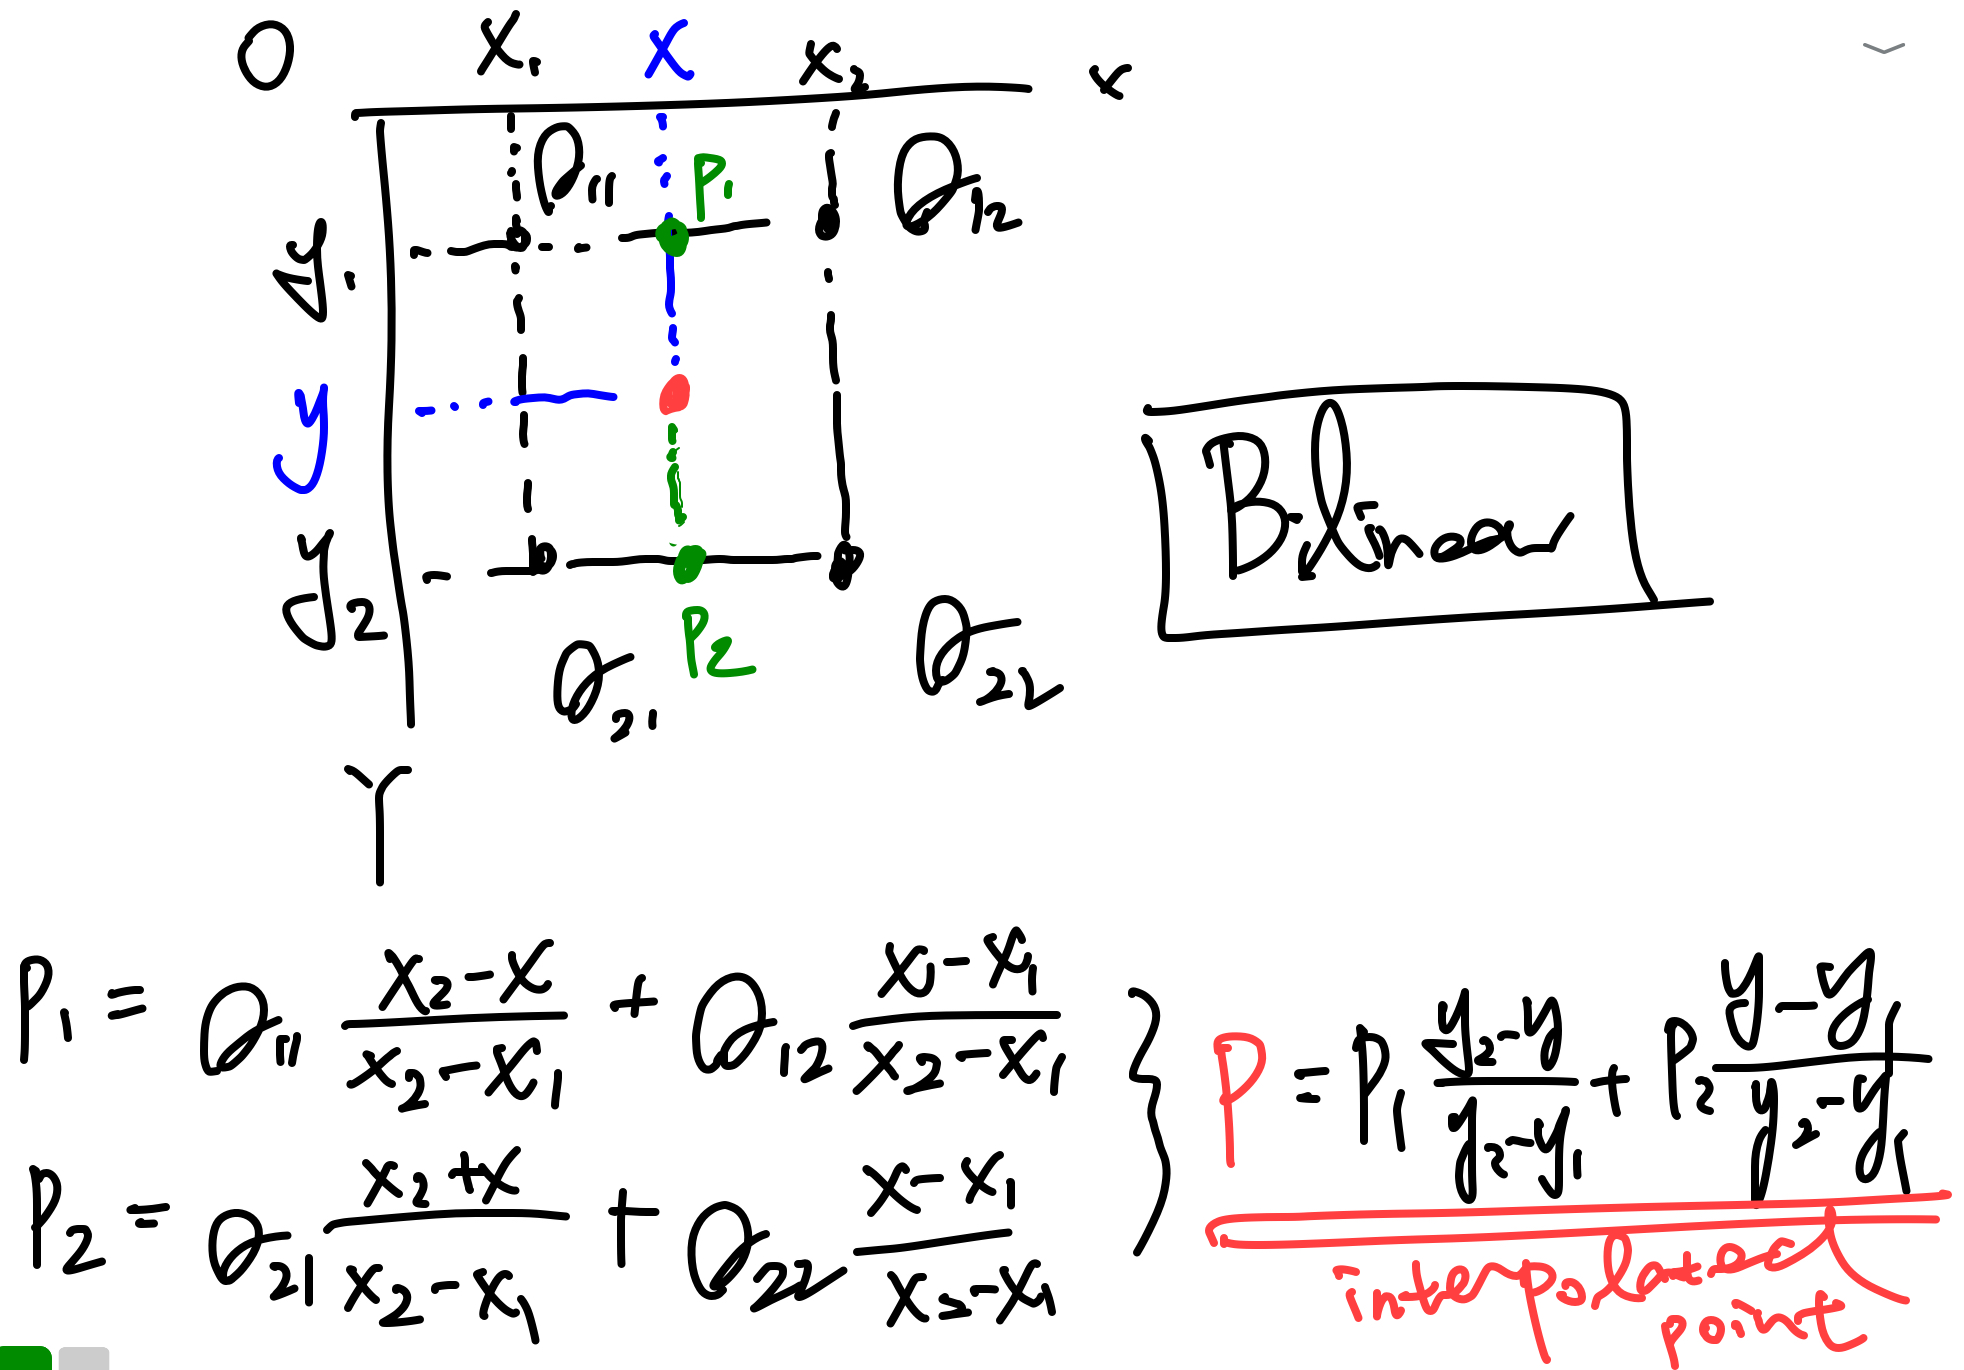 O x₁ x x₂ x
Q₁₁ P₁ Q₁₂
y₁
y
Bilinear
y₂
Q₂₁ P₂ Q₂₂
Y
P₁ = Q₁₁ (x₂-x)/(x₂-x₁) + Q₁₂ (x-x₁)/(x₂-x₁)
P₂ = Q₂₁ (x₂+x)/(x₂-x₁) + Q₂₂ (x-x₁)/(x₂-x₁)
} P = P₁ (y₂-y)/(y₂-y₁) + P₂ (y-y₁)/(y₂-y₁)
interpolated
point